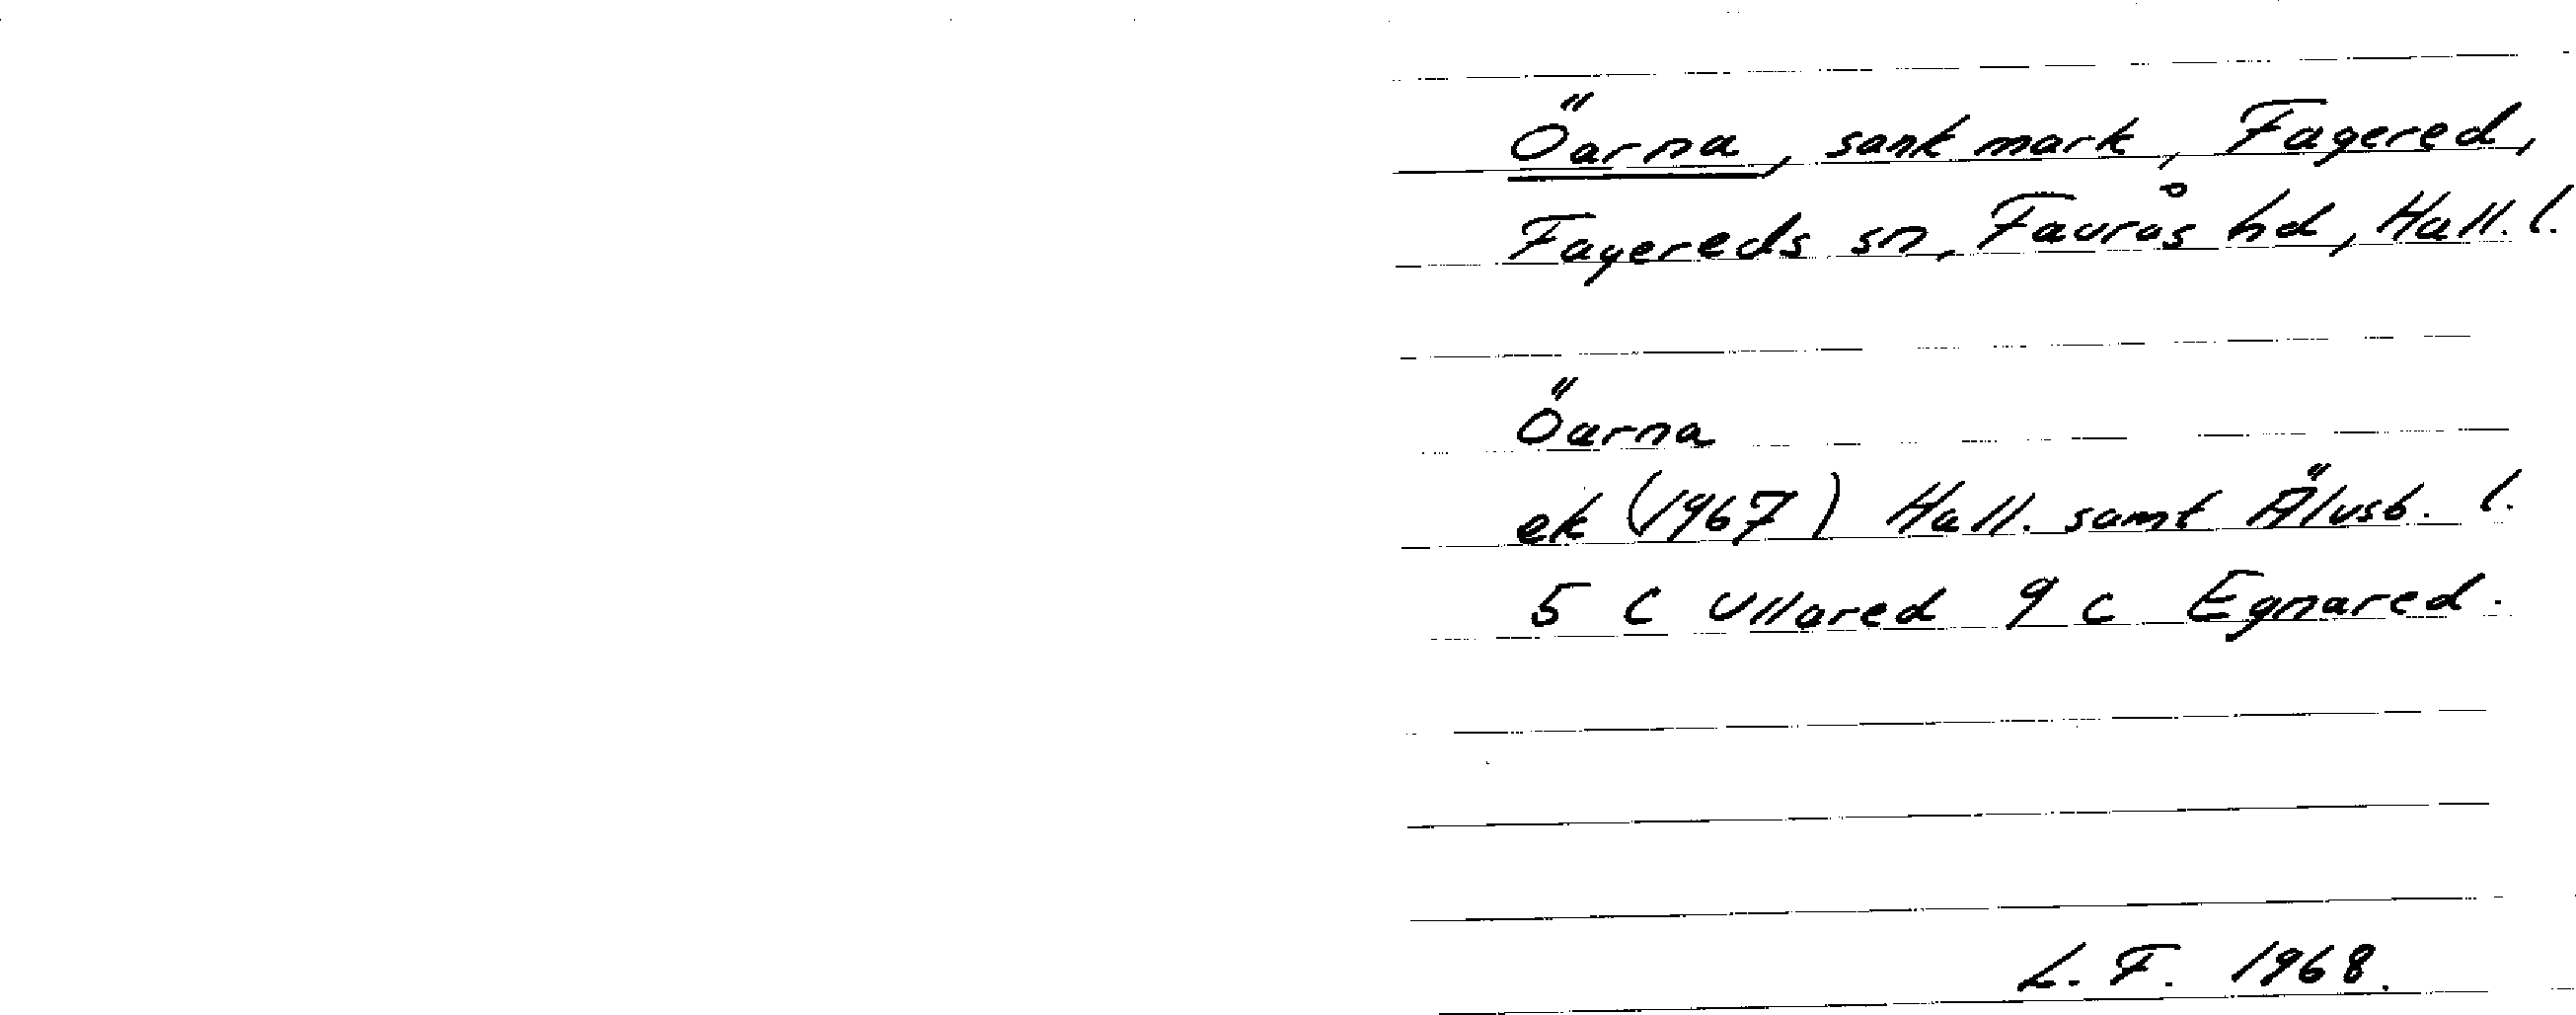 Öarna, sank mark, Fagered,
Fagereds sn, Faurås hd, Hall. l.
Öarna
ek (1967) Hall. samt Älvsb. l.
5 C Ullared 9 c Egnared.
L. F. 1968.